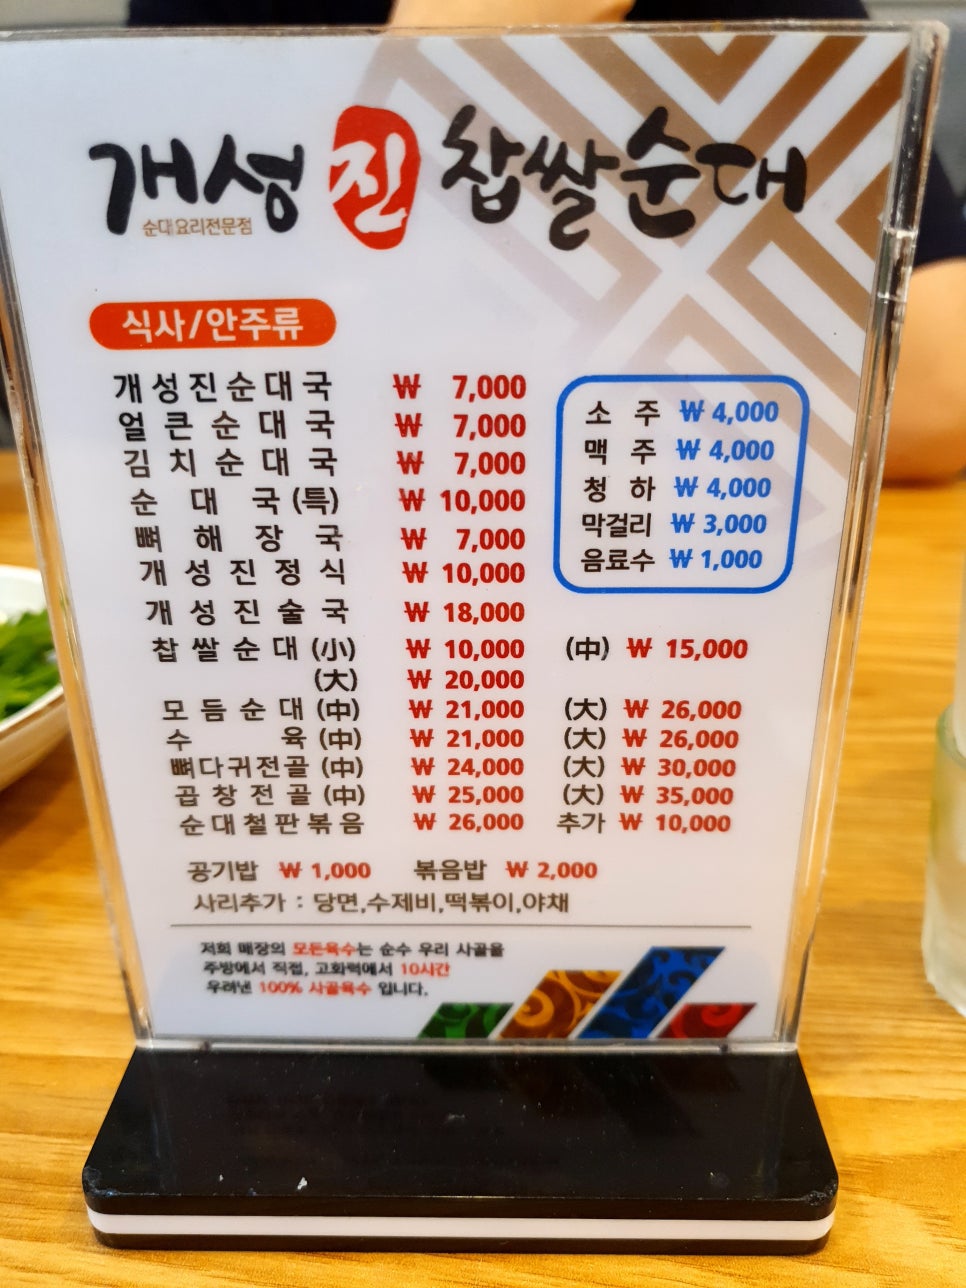 개성 진 찹쌀순대
순대요리전문점
식사/안주류
개성진순대국 ₩ 7,000
얼큰순대국 ₩ 7,000
김치순대국 ₩ 7,000
순대국(특) ₩ 10,000
뼈해장국 ₩ 7,000
개성진정식 ₩ 10,000
개성진술국 ₩ 18,000
찹쌀순대(小) ₩ 10,000 (中) ₩ 15,000
(大) ₩ 20,000
모듬순대(中) ₩ 21,000 (大) ₩ 26,000
수육(中) ₩ 21,000 (大) ₩ 26,000
뼈다귀전골(中) ₩ 24,000 (大) ₩ 30,000
곱창전골(中) ₩ 25,000 (大) ₩ 35,000
순대철판볶음 ₩ 26,000 추가 ₩ 10,000
소주 ₩ 4,000
맥주 ₩ 4,000
청하 ₩ 4,000
막걸리 ₩ 3,000
음료수 ₩ 1,000
공기밥 ₩ 1,000 볶음밥 ₩ 2,000
사리추가 : 당면,수제비,떡볶이,야채
저희 매장의 모든육수는 순수 우리 사골을
주방에서 직접, 고화력에서 10시간
우려낸 100% 사골육수 입니다.